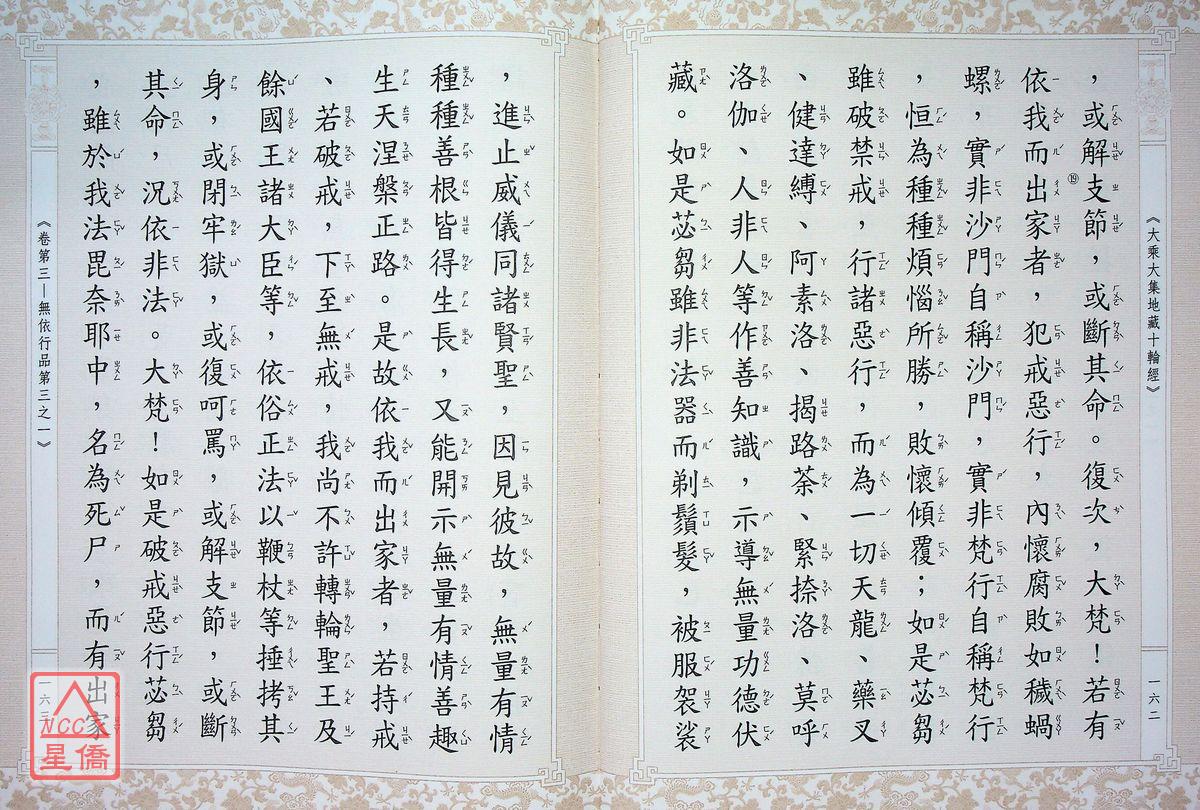 《大乘大集地藏十輪經》
一六二
，或解支節，或斷其命。復次，大梵！若有
依我而⑲出家者，犯戒惡行，內懷腐敗如穢蝸
螺，實非沙門自稱沙門，實非梵行自稱梵行
，恒為種種煩惱所勝，敗懷傾覆；如是苾芻
雖破禁戒，行諸惡行，而為一切天龍、藥叉
、健達縛、阿素洛、揭路荼、緊捺洛、莫呼
洛伽、人非人等作善知識，示導無量功德伏
藏。如是苾芻雖非法器而剃鬚髮，被服袈裟
，進止威儀同諸賢聖，因見彼故，無量有情
種種善根皆得生長，又能開示無量有情善趣
生天涅槃正路。是故依我而出家者，若持戒
、若破戒，下至無戒，我尚不許轉輪聖王及
餘國王諸大臣等，依俗正法以鞭杖等捶拷其
身，或閉牢獄，或復呵罵，或解支節，或斷
其命，況依非法。大梵！如是破戒惡行苾芻
，雖於我法毘奈耶中，名為死尸，而有出家
《卷第三—無依行品第三之一》
一六三
NCC
星僑